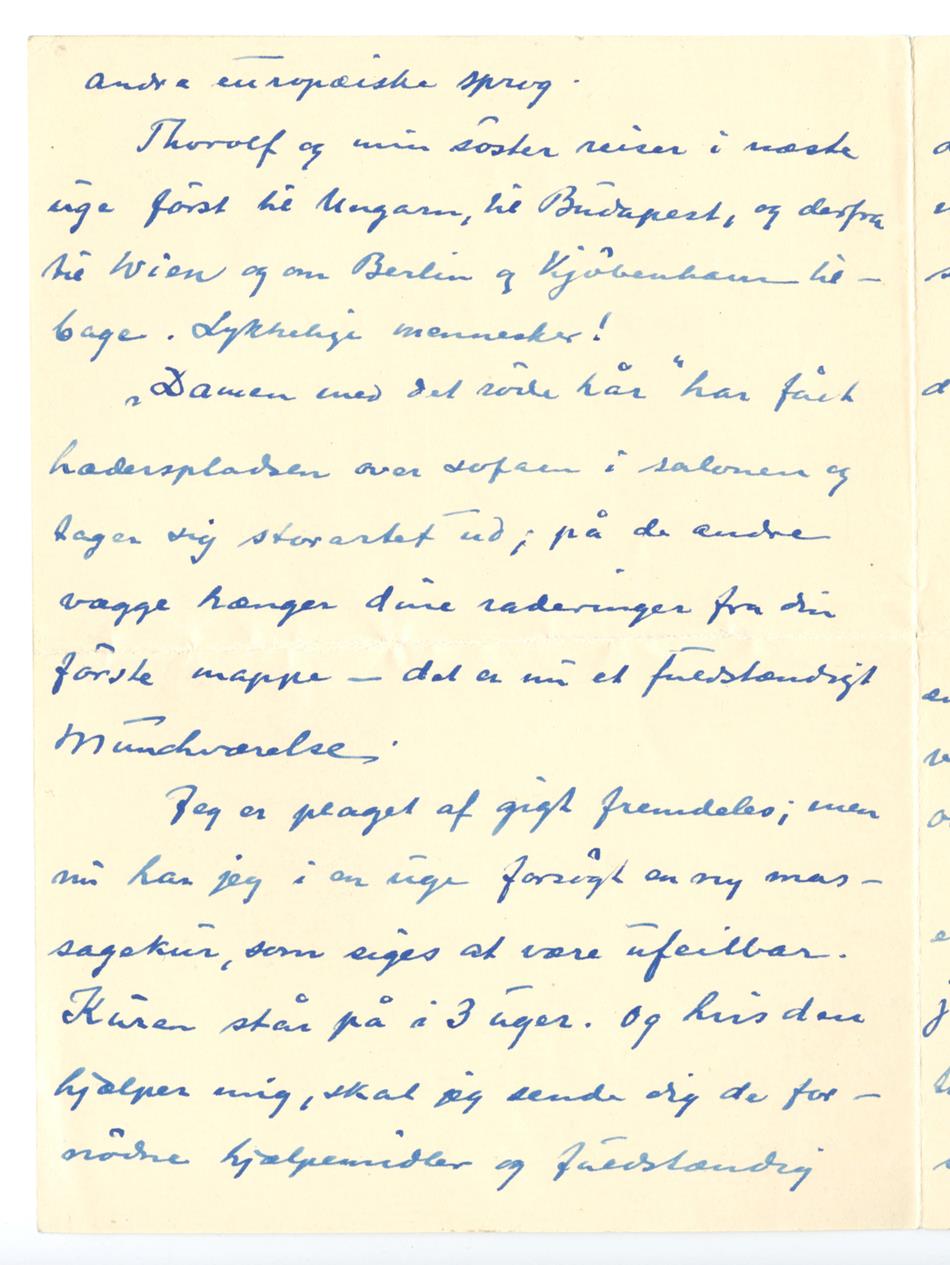 andre europæiske sprog.
Thorolf og min søster reiser i næste
uge først til Ungarn, til Budapest, og derfra
til Wien og om Berlin og Kjøbenhavn til-
bage. Lykkelige mennesker!
„Damen med det røde hår“ har fået
hæderspladsen over sofaen i salonen og
tager sig storartet ud; på de andre
vægge hænger dine raderinger fra din
første mappe — det er nu et fuldstændigt
Munchværelse.
Jeg er plaget af gigt fremdeles; men
nu har jeg i en uge forsøgt en ny mas-
sagekur, som siges at være ufeilbar.
Kuren står på i 3 uger. Og hvis den
hjælper mig, skal jeg sende dig de for-
nødne hjælpemidler og fuldstændig